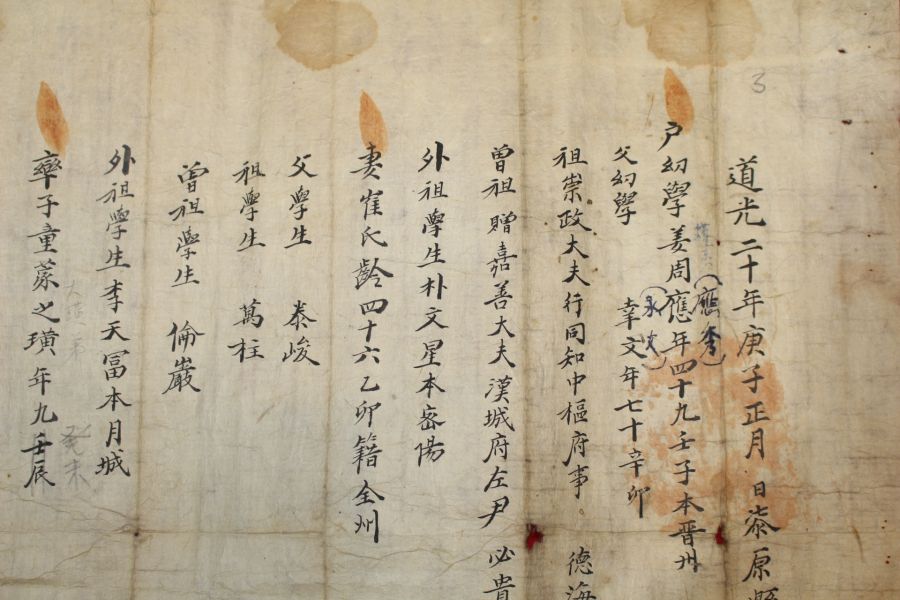 3
道光二十年庚子正月 日泰原縣
(應秀)
戶幼學姜周應年四十九壬子本晋州
父幼學 幸文年七十辛卯
祖崇政大夫行同知中樞府事 德海
曾祖贈嘉善大夫漢城府左尹 必貴
外祖學生朴文星本密陽
妻崔氏齡四十六乙卯籍全州
父學生 泰峻
祖學生 萬柱
曾祖學生 倫巖
外祖學生李天冨本月城
癸未
率子童蒙之璜年九壬辰